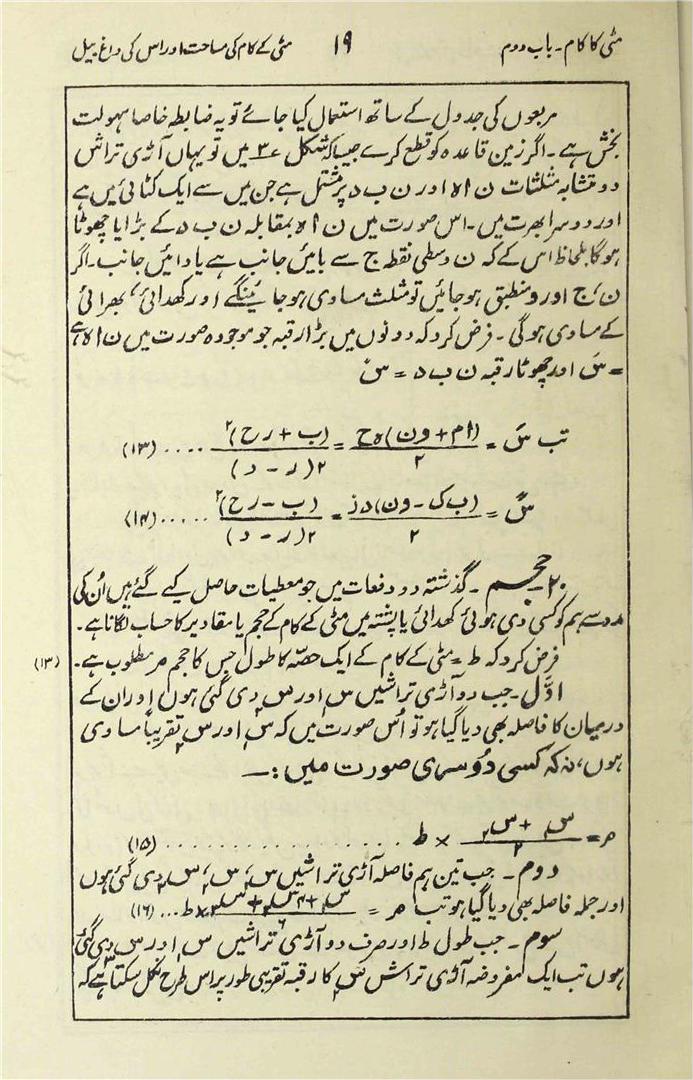 مٹی کا کام۔ باب دوم ۱۹ مٹی کے کام کی مساحت اور اس کی داغ بیل
مربعوں کی جدول کے ساتھ استعمال کیا جائے تو یہ ضابطہ خاصا سہولت
بخش ہے۔ اگر زمین قاعدہ کو قطع کرے جیسا کہ شکل ۳ء میں تو یہاں آڑی تراش
دو متشابہ مثلثات ن ا ہ اور ن ب د پر مشتمل ہے جن میں سے ایک کٹائی میں ہے
اور دوسرا بھرت میں۔ اس صورت میں ن ا ہ بمقابلہ ن ب د کے بڑا یا چھوٹا
ہوگا بلحاظ اس کے کہ ن وسطی نقطہ ج سے بائیں جانب ہے یا دائیں جانب۔ اگر
ن، ج اور و منطبق ہوجائیں تو مثلث مساوی ہوجائینگے اور کھدائی، بھرائی
کے مساوی ہوگی۔ فرض کرو کہ دونوں میں بڑا رقبہ جو موجودہ صورت میں ن ا ہ ہے
= سَ اور چھوٹا رقبہ ن ب د = سً
تب سَ = (ام + ون) ہ ح / ۲ = (ب + ر ح)۲ / ۲(ر − د) .... (۱۳)
سً = (ب ک − ون) د ز / ۲ = (ب − ر ح)۲ / ۲(ر − د) ..... (۱۴)
۲۰۔ حجم۔ گذشتہ دو دفعات میں جو معطیات حاصل کیے گئے ہیں اُن کی
مدد سے ہم کو کسی دی ہوئی کھدائی یا پشتہ میں مٹی کے کام کے حجم یا مقادیر کا حساب لگانا ہے۔
فرض کرو کہ ط = مٹی کے کام کے ایک حصّہ کا طول جس کا حجم م مطلوب ہے۔ (۱۳)
اوّل۔ جب دو آڑی تراشیں س۱ اور س۲ دی گئی ہوں اور ان کے
درمیان کا فاصلہ بھی دیا گیا ہو تو اُس صورت میں کہ س۱ اور س۲ تقریباً مساوی
ہوں، نہ کہ کسی دُوسری صورت میں :۔
م = س۱ + س۲ / ۲ × ط .................. (۱۵)
دوم۔ جب تین ہم فاصلہ آڑی تراشیں س۱، س۲، س۳ دی گئی ہوں
اور جملہ فاصلہ بھی دیا گیا ہو تب م = س۱ + ۴س۲ + س۳ / ۶ × ط ... (۱۶)
سوم۔ جب طول ط اور صرف دو آڑی تراشیں س۱ اور س۳ دی گئی
ہوں تب ایک مفروضہ آڑی تراش س۲ کا رقبہ تقریبی طور پر اس طرح نکل سکتا ہے کہ